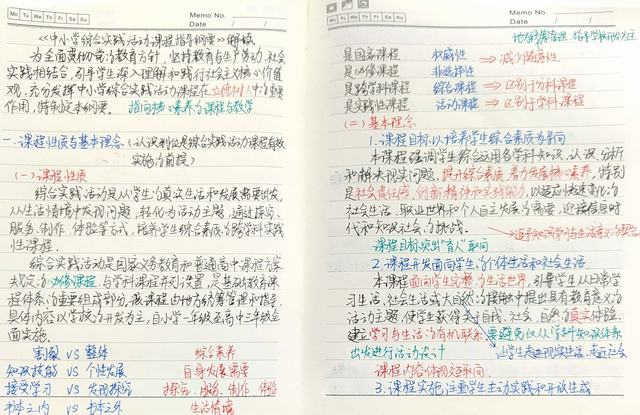 Mo Tu We Th Fr Sa Su
Memo No.
Date / /
《中小学综合实践活动课程指导纲要》解读
为全面贯彻党的教育方针，坚持教育与生产劳动、社会
实践相结合，引导学生深入理解和践行社会主义核心价值
观，充分发挥中小学综合实践活动课程在立德树人中的重要
作用，特制定本纲要。 指向核心素养的课程与教学
一、课程性质与基本理念（认识到位是综合实践活动课程有效
实施的前提）
（一）课程性质
综合实践活动是从学生的真实生活和发展需要出发，
从生活情境中发现问题，转化为活动主题，通过探究、
服务、制作、体验等方式，培养学生综合素质的跨学科实践
性课程。
综合实践活动是国家义务教育和普通高中课程方案
规定的必修课程，与学科课程并列设置，是基础教育课程
体系的重要组成部分。该课程由地方统筹管理和指导，
具体内容以学校开发为主，自小学一年级至高中三年级全
面实施。
割裂 VS 整体 综合素养
知识技能 VS 个性发展 自身发展需要
接受学习 VS 发现探究 探究、服务、制作、体验
书本之内 VS 书本之外 生活情境
Mo Tu We Th Fr Sa Su
Memo No.
Date / /
地方统筹管理，指导学校开发为主
是国家课程 权威性 ⇒ 减少随意性
是必修课程 非选择性
是跨学科课程 综合课程 ⇒ 区别于分科课程
是实践性课程 活动课程 ⇒ 区别于学科课程
（二）基本理念
1.课程目标以培养学生综合素质为导向
本课程强调学生综合运用各学科知识，认识、分析
和解决现实问题，提升综合素质，着力发展核心素养，特别
是社会责任感、创新精神和实践能力，以适应快速变化的
社会生活、职业世界和个人自主发展的需要，迎接信息时
代和知识社会的挑战。
课程目标突出“育人”取向
2.课程开发面向学生的个体生活和社会生活
本课程面向学生完整的生活世界，引导学生从日常学
习生活、社会生活或大自然的接触中提出具有教育意义的
活动主题，使学生获得关于自我、社会、自然的真实体验，
建立学习与生活的有机联系。要避免仅从学科知识体系
出发进行活动设计 让学生走进现实生活，走近社会
课程内容体现交互取向
3.课程实施注重学生主动实践和开放生成